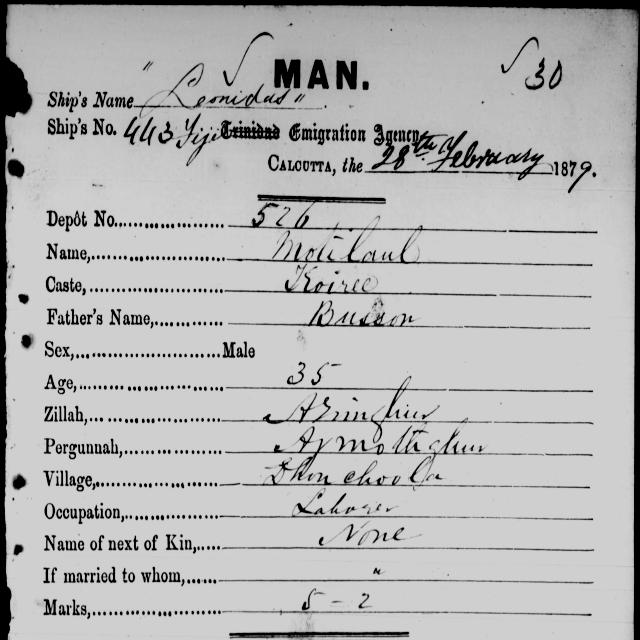 MAN. 30
Ship's Name "Leonidas"
Ship's No. 443 Fiji Trinidad Emigration Agency
CALCUTTA, the 28th February 1879.
Depôt No. 526
Name, Motilaul
Caste, Koiree
Father's Name, Busson
Sex, Male
Age, 35
Zillah,
Pergunnah,
Village,
Occupation, Labourer
Name of next of Kin, None
If married to whom, "
Marks, 5-2